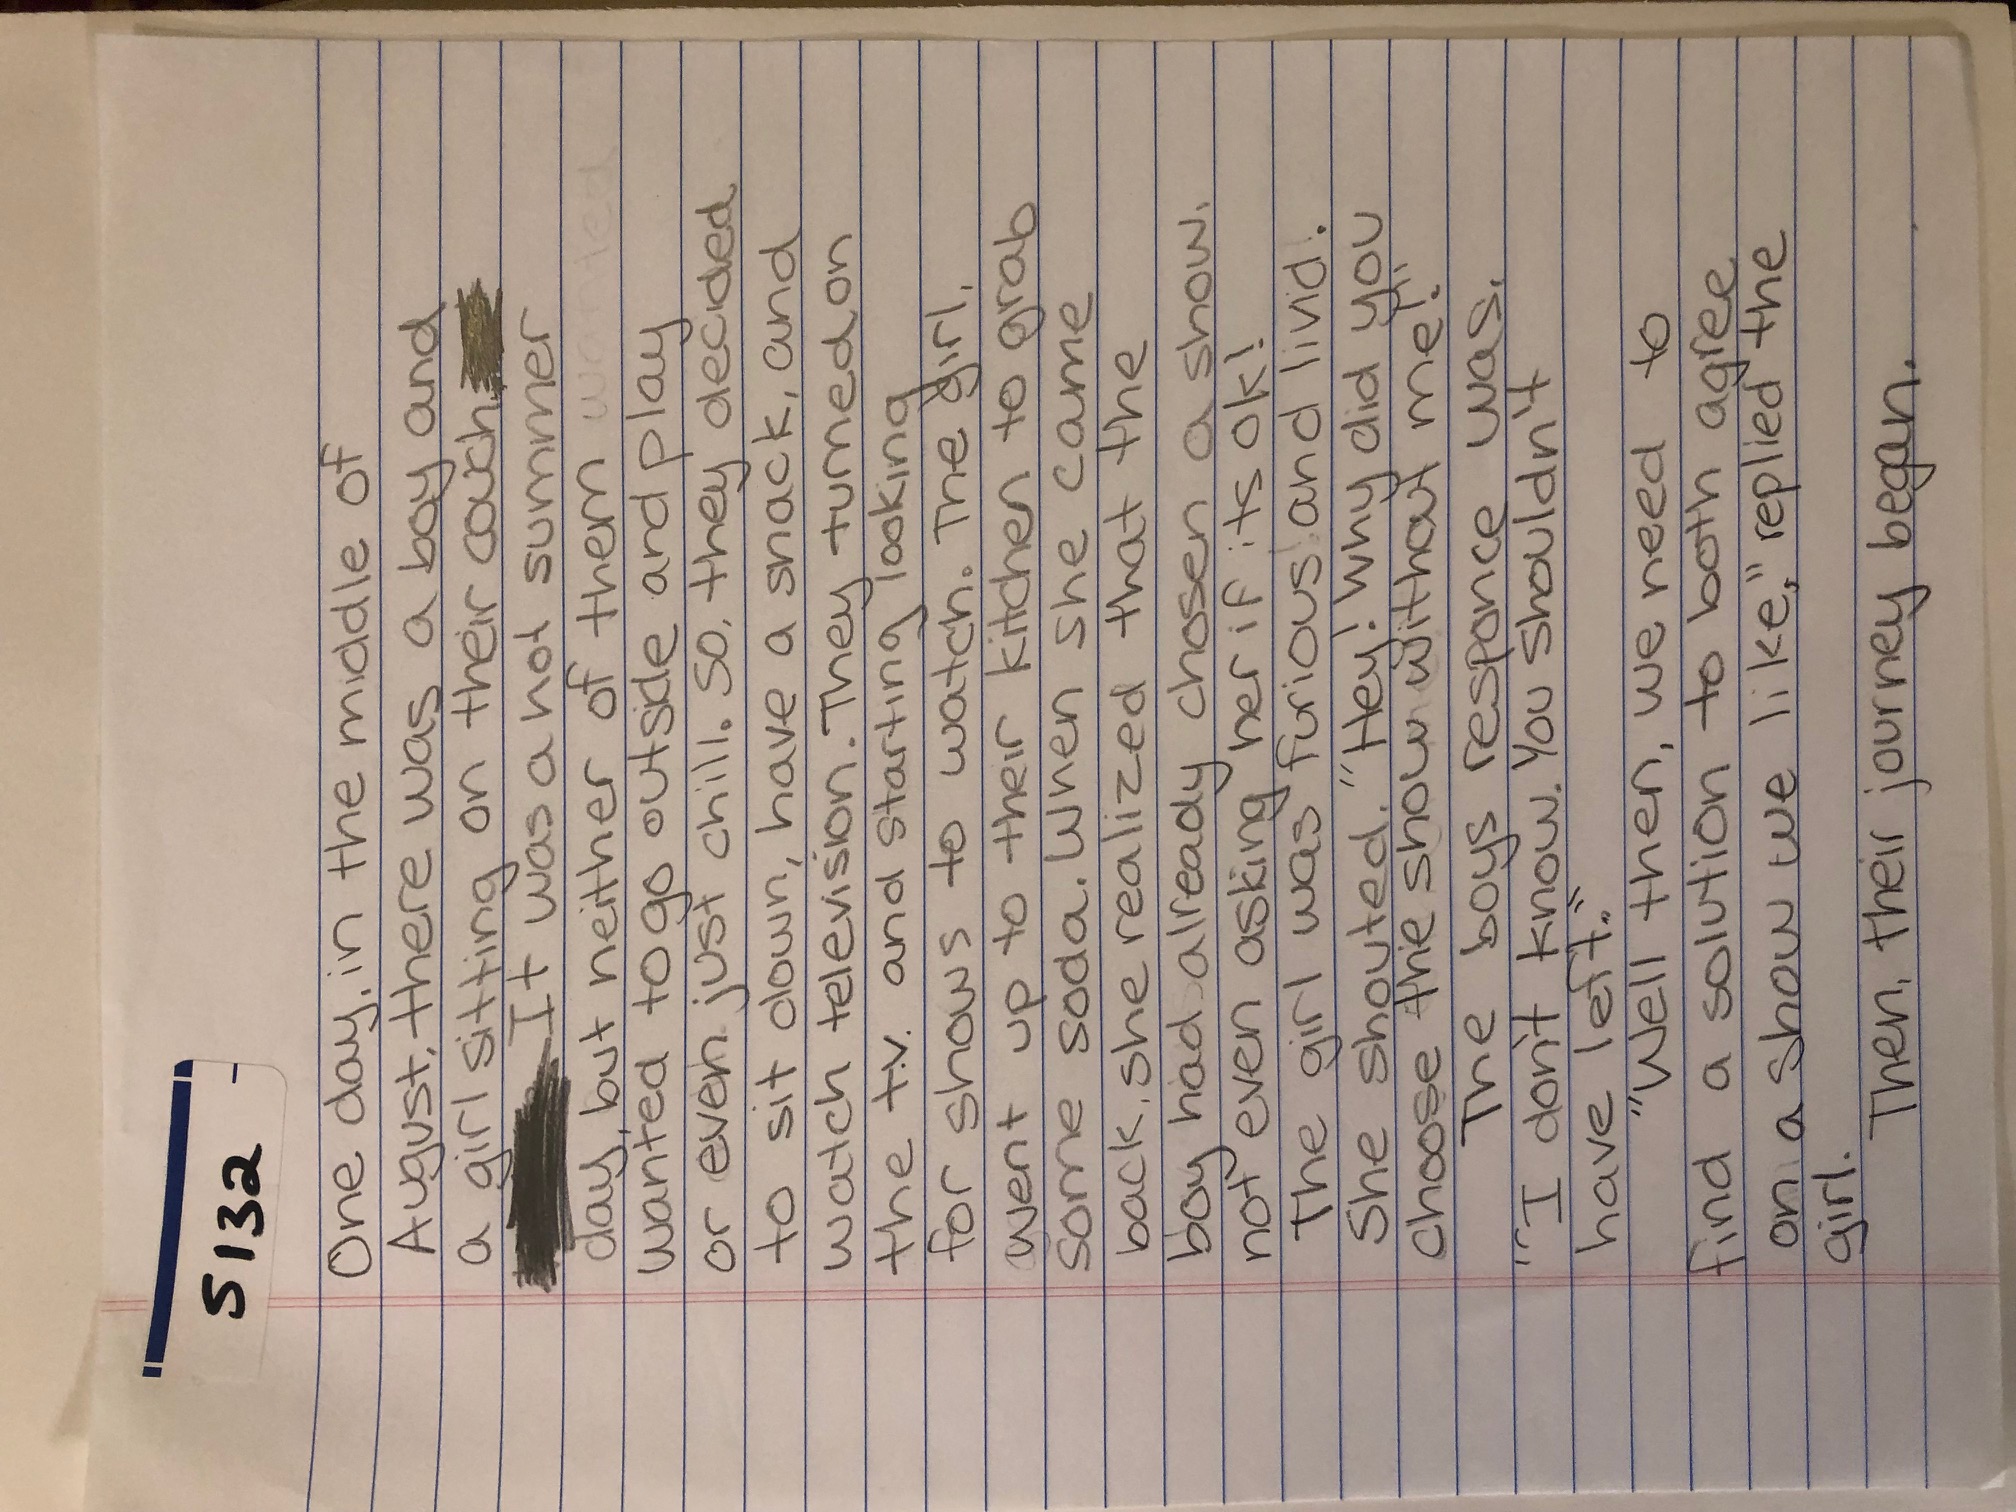 S132
One day, in the middle of
August, there was a boy and
a girl sitting on their couch.
It was a hot summer
day, but neither of them wanted
wanted to go outside and play
or even just chill. So, they decided
to sit down, have a snack, and
watch television. They turned on
the t.v. and starting looking
for shows to watch. The girl,
went up to their kitchen to grab
some soda. When she came
back, she realized that the
boy had already chosen a show,
not even asking her if its ok!
The girl was furious and livid.
She shouted, "Hey! Why did you
choose the show without me!"
The boys responce was,
"I don't know. You shouldn't
have left."
"Well then, we need to
find a solution to both agree
on a show we like," replied the
girl.
Then, their journey began.